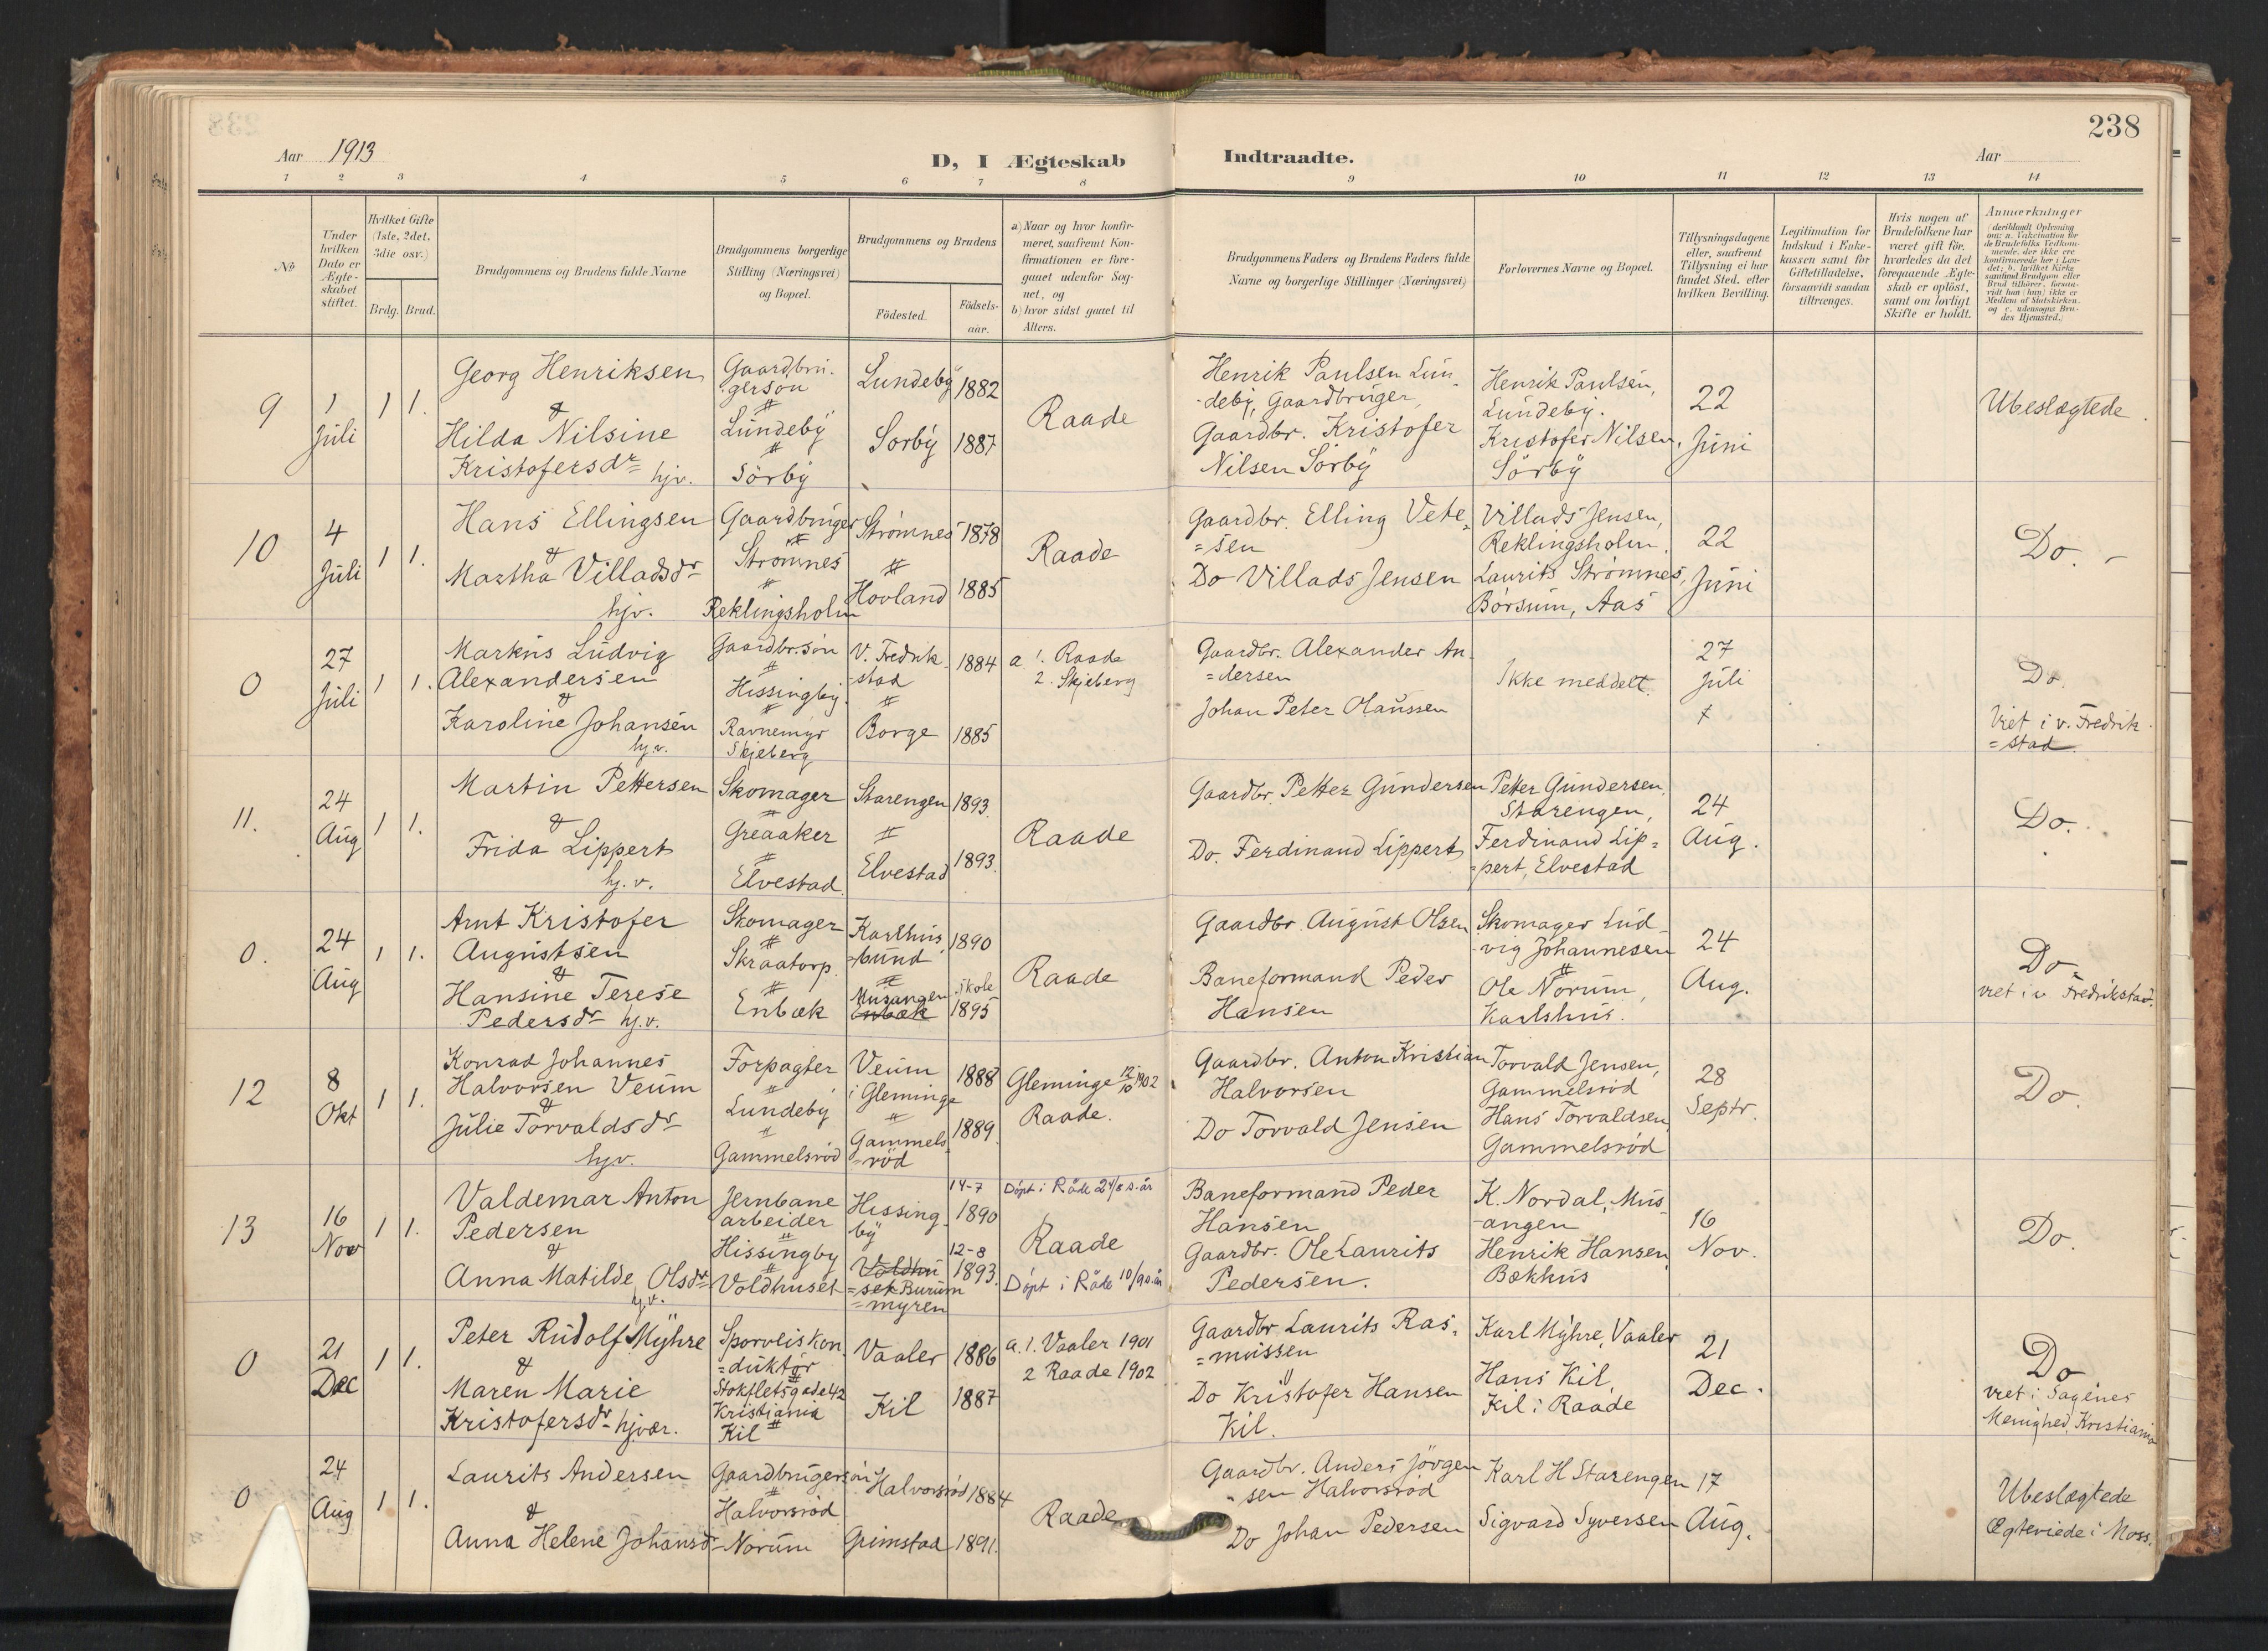 238
Aar 1913
D, I Ægteskab Indtraadte.
Aar
1 2 3 4 5 6 7 8 9 10 11 12 13 14
No
Under hvilken Dato er Ægteskabet stiftet.
Hvilket Gifte (1ste, 2det, 3die osv.)
Brdg. Brud.
Brudgommens og Brudens fulde Navne
Brudgommens borgerlige Stilling (Næringsvei) og Bopæl.
Brudgommens og Brudens
Födested.
Födsels-aar.
a) Naar og hvor konfirmeret, saafremt Konfirmationen er foregaaet udenfor Sognet, og
b) hvor sidst gaaet til Alters.
Brudgommens Faders og Brudens Faders fulde Navne og borgerlige Stillinger (Næringsvei)
Forlovernes Navne og Bopæl.
Tillysningsdagene eller, saafremt Tillysning ei har fundet Sted, efter hvilken Bevilling.
Legitimation for Indskud i Enkekassen samt for Giftetilladelse, forsaavidt saadan tiltrænges.
Hvis nogen af Brudefolkene har været gift för, hvorledes da det foregaaende Ægteskab er oplöst, samt om lovligt Skifte er holdt.
Anmærkninger (deriblandt Oplysning om: a. Vakcination for de Brudefolks Vedkommende, der ikke ere konfirmerede her i Landet; b. hvilket Kirkesamfund Brudgom eller Brud tilhörer, forsaavidt han (hun) ikke er Medlem af Statskirken, og c. udensogns Brudes Hjemsted.)
9
1 Juli
1 1.
Georg Henriksen
&
Hilda Nilsine
Kristofersdr hjv.
Gaardbru-
gersön
Lundeby
Sörby
Lundeby 1882
Sorby 1887
Raade
Henrik Paulsen Lun-
deby, Gaardbruger,
Gaardbr. Kristofer
Nilsen Sörby
Henrik Paulsen,
Lundeby.
Kristofer Nilsen,
Sörby
22
Juni
Ubeslægtede.
10
4
Juli
1 1.
Hans Ellingsen
&
Martha Villadsdr
hjv.
Gaardbruger
Strömnes
Reklingsholm
Strømnes 1878
Hovland 1885
Raade
Gaardbr. Elling Vete-
=sen
Do Villads Jensen
Villads Jensen,
Reklingsholm.
Laurits Strømnes,
Börsum, Aas
22
Juni
Do. -
0
27
Juli
1 1.
Markus Ludvig
Alexandersen
&
Karoline Johansen
hj.v.
Gaardbr.sön
Hissingby.
Ravnemyr
Skjeberg
V. Fredrik-
stad 1884
Borge 1885
a 1. Raade
2. Skjeberg
Gaardbr. Alexander An-
=dersen
Johan Peter Olaussen
Ikke meddelt.
27
Juli
Do.
Viet i v. Fredrik-
=stad.
11.
24
Aug
1 1.
Martin Pettersen
&
Frida Lippert
hj.v.
Skomager
Greaaker
Elvestad
Starengen 1893.
Elvestad 1893.
Raade
Gaardbr. Petter Gundersen
Do. Ferdinand Lippert
Petter Gundersen,
Starengen,
Ferdinand Lip-
=pert, Elvestad
24
Aug.
Do.
0.
24
Aug
1 1.
Arnt Kristofer
Augustsen
&
Hansine Terese
Pedersdr hj.v.
Skomager
Skraatorp.
Enbæk
Karlhus-
=bund 1890
Musangen skole
Enbæk 1895
Raade
Gaardbr August Olsen
Baneformand Peder
Hansen
Skomager Lud-
vig Johannesen
Ole Norum,
Karlshus.
24
Aug.
Do
viet i v Fredrikstad.
12
8
Okt
1 1.
Konrad Johannes
Halvorsen Veum
&
Julie Torvaldsdr
hjv.
Forpagter
Lundeby
Gammelsröd
Veum
i Gleminge 1888
Gammels-
=röd 1889.
Gleminge 12/10 1902
Raade.
Gaardbr. Anton Kristian
Halvorsen
Do Torvald Jensen
Torvald Jensen,
Gammelsröd
Hans Torvaldsen,
Gammelsröd
28
Septr.
Do.
13
16
Nov
1 1.
Valdemar Anton
Pedersen
&
Anna Matilde Olsdr
hj.v.
Jernbane
arbeider
Hissingby
Voldhuset
Hissing-
by
14-7
1890
12-8
1893.
Voldhu
=set Burum
=myren
Döpt i Råde 24/8 s.år
Raade
Döpt i Råde 10/9 s.år
Baneformand Peder
Hansen
Gaardbr. Ole Laurits
Pedersen.
K. Nordal, Mus-
-angen
Henrik Hansen
Bækhus
16
Nov.
Do.
0
21
Dec
1 1.
Peter Rudolf Myhre
&
Maren Marie
Kristofersdr hjvær.
Sporveiskon-
=duktör
Stokfletsgade 42
Kristiania
Kil
Vaaler 1886
Kil 1887
a. 1. Vaaler 1901
2 Raade 1902
Gaardbr Laurits Ras-
=mussen
Do Kristofer Hansen
Kil.
Karl Myhre, Vaaler
Hans Kil,
Kil i Raade
21
Dec.
Do
viet i Sagenes
Menighed, Kristiania
0
24
Aug
1 1.
Laurits Andersen
&
Anna Helene Johansdr
Gaardbrugersön
Halvorsröd
Norum
Halvorsröd 1884
Grimstad 1891.
Raade
Gaardbr. Anders Jörgen-
sen Halvorsröd
Do Johan Pedersen
Karl H Starengen
Sigvard Syversen
17
Aug.
Ubeslægtede
Ægteviede i Moss.